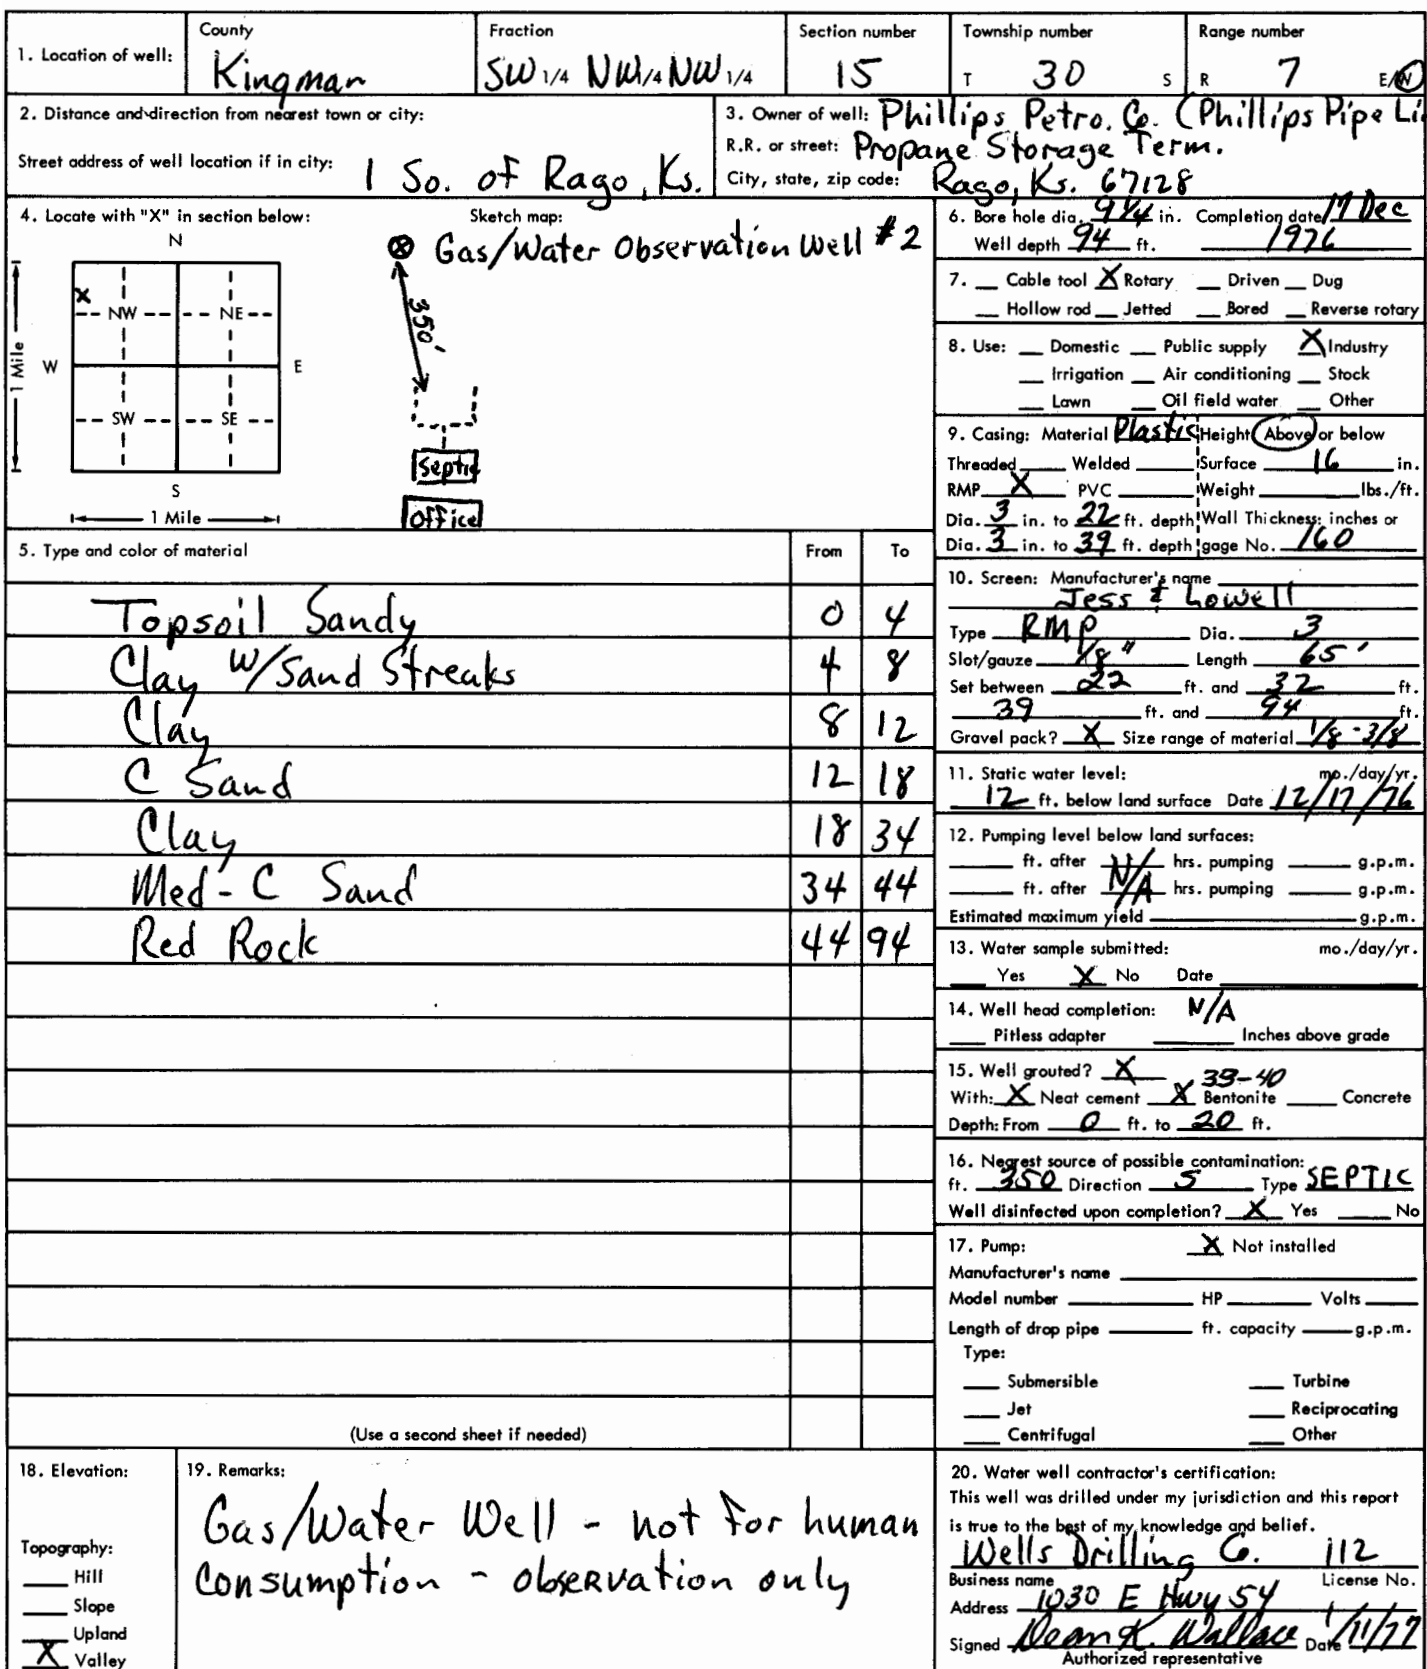 1. Location of well:
County
Kingman
Fraction
SW 1/4 NW 1/4 NW 1/4
Section number
15
Township number
T 30 S
Range number
R 7 E/W
2. Distance and direction from nearest town or city:
Street address of well location if in city:
1 So. of Rago, Ks.
3. Owner of well: Phillips Petro. Co. (Phillips Pipe Li
R.R. or street: Propane Storage Term.
City, state, zip code: Rago, Ks. 67128
4. Locate with "X" in section below:
N
X
NW NE
W E
SW SE
S
1 Mile
1 Mile
Sketch map:
Gas/Water Observation Well #2
350'
Septic
Office
5. Type and color of material From To
Topsoil Sandy 0 4
Clay W/Sand Streaks 4 8
Clay 8 12
C Sand 12 18
Clay 18 34
Med-C Sand 34 44
Red Rock 44 94
(Use a second sheet if needed)
6. Bore hole dia. 9 1/4 in. Completion date 17 Dec
Well depth 94 ft. 1976
7. Cable tool X Rotary Driven Dug
Hollow rod Jetted Bored Reverse rotary
8. Use: Domestic Public supply X Industry
Irrigation Air conditioning Stock
Lawn Oil field water Other
9. Casing: Material Plastic Height Above or below
Threaded Welded Surface 16 in.
RMP X PVC Weight lbs./ft.
Dia. 3 in. to 22 ft. depth Wall Thickness: inches or
Dia. 3 in. to 39 ft. depth gage No. 160
10. Screen: Manufacturer's name
Jess & Lowell
Type RMP Dia. 3
Slot/gauze 1/8" Length 65'
Set between 22 ft. and 32 ft.
39 ft. and 94 ft.
Gravel pack? X Size range of material 1/8 - 3/8
11. Static water level: mo./day/yr.
12 ft. below land surface Date 12/17/76
12. Pumping level below land surfaces:
ft. after N/A hrs. pumping g.p.m.
ft. after hrs. pumping g.p.m.
Estimated maximum yield g.p.m.
13. Water sample submitted: mo./day/yr.
Yes X No Date
14. Well head completion: N/A
Pitless adapter Inches above grade
15. Well grouted? X
With: X Neat cement X 33-40 Bentonite Concrete
Depth: From 0 ft. to 20 ft.
16. Nearest source of possible contamination:
ft. 350 Direction S Type SEPTIC
Well disinfected upon completion? X Yes No
17. Pump: X Not installed
Manufacturer's name
Model number HP Volts
Length of drop pipe ft. capacity g.p.m.
Type:
Submersible Turbine
Jet Reciprocating
Centrifugal Other
18. Elevation:
Topography:
Hill
Slope
Upland
X Valley
19. Remarks:
Gas/Water Well - not for human
consumption - observation only
20. Water well contractor's certification:
This well was drilled under my jurisdiction and this report
is true to the best of my knowledge and belief.
Wells Drilling Co. 112
Business name License No.
Address 1030 E Hwy 54
Signed Dean K. Wallace Date 1/11/77
Authorized representative